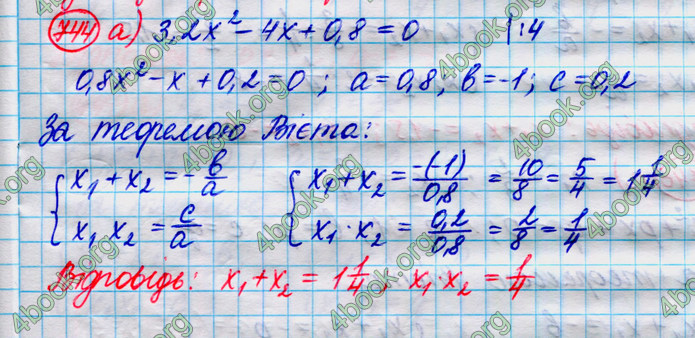 744 а) 3,2x² - 4x + 0,8 = 0 | : 4
0,8x² - x + 0,2 = 0 ; a = 0,8, в = -1 ; c = 0,2
За теоремою Вієта:
{ x₁ + x₂ = - в/a { x₁ + x₂ = -(-1)/0,8 = 10/8 = 5/4 = 1 1/4
{ x₁ x₂ = c/a { x₁ · x₂ = 0,2/0,8 = 2/8 = 1/4
Відповідь: x₁ + x₂ = 1 1/4, x₁ · x₂ = 1/4
4book.org